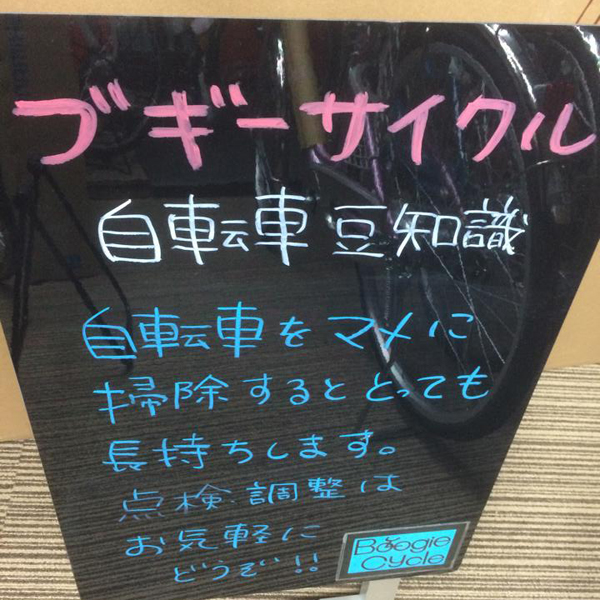 ブギーサイクル
自転車豆知識
自転車をマメに
掃除するととっても
長持ちします。
点検調整は
お気軽に
どうぞ!!
Boogie
Cycle